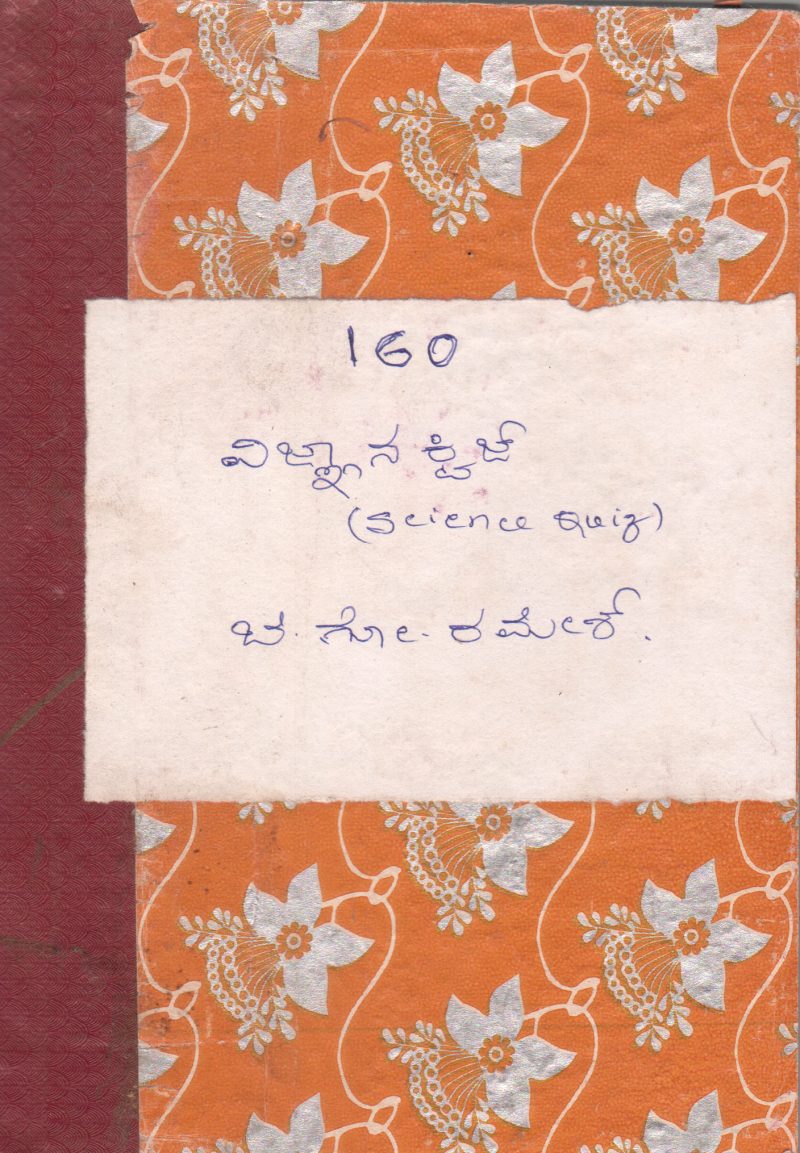 160
ವಿಜ್ಞಾನ ಕ್ವಿಜ್
(Science Quiz)
ಚ. ಗೋ. ರಮೇಶ್.